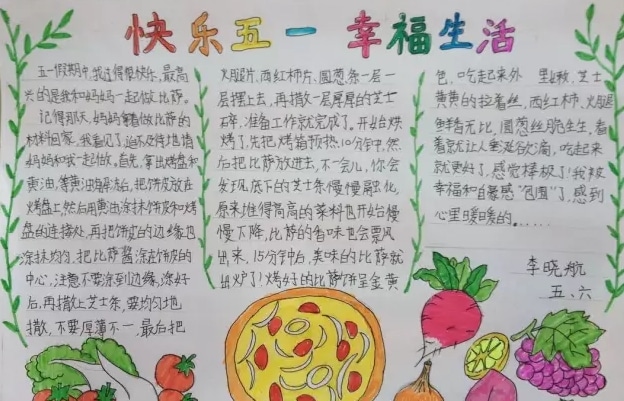 快乐五一 幸福生活
五一假期中,我过得很快乐,最高
兴的是我和妈妈一起做比萨。
记得那天,妈妈拿着做比萨的
材料回家,我看见了迫不及待地请
妈妈和我一起做,首先,拿出烤盘和
黄油,等黄油解冻后,把饼皮放在
烤盘上,然后用黄油涂抹饼皮和烤
盘的连接处,再把饼皮的边缘也
涂抹均匀,把比萨酱涂在饼皮的
中心,注意不要涂到边缘,涂好
后,再撒上芝士条,要均匀地
撒,不要厚薄不一,最后把
火腿片、西红柿片、圆葱条一层一
层摆上去,再撒一层厚厚的芝士
碎,准备工作就完成了。开始烘
烤了,先把烤箱预热10分钟,然
后把比萨放进去,不一会儿,你会
发现,底下的芝士条慢慢融化,
原来堆得高高的菜料也开始慢
慢下降,比萨的香味也会飘
出来,15分钟后,美味的比萨就
出炉了!烤好的比萨饼呈金黄
色,吃起来外 里嫩,芝士
黄黄的拉着丝,西红柿、火腿
鲜香无比,圆葱丝脆生生,看
着就让人垂涎欲滴,吃起来
就更好了,感觉棒极了!我被
幸福和自豪感“包围”了,感到
心里暖暖的。.....
李晓航
五、六